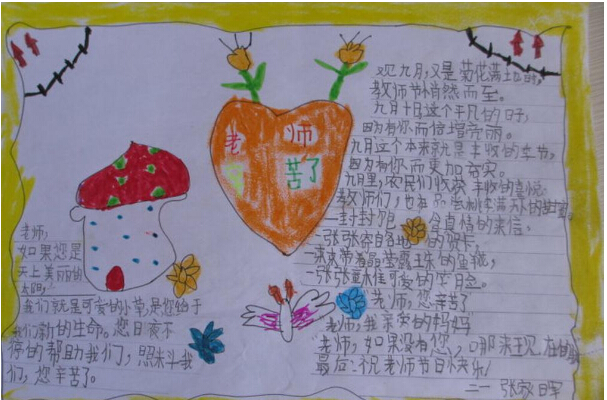 老师
苦了
老师,
如果您是
天上美丽的
太阳,
我们就是可爱的小草,是您给于
我们新的生命。您日夜不
停的帮助我们,照料我
们,您辛苦了。
九月,又是菊花满
教师节悄然而至。
九月十日这个平凡的日子,
因为有你而倍增奇丽。
九月这个本来就是丰收的季节,
因为有你而更加充实。
九月里,农民们收获丰收的喜悦
教师们,也在品尝桃李满天下的甜蜜。
一封封 真情的来信,
一张张寄自各地的贺卡,
带着晶莹露珠的
一张张 可爱的笑脸。
老师,您辛苦了
老师,我亲爱的妈妈
老师,如果没有您,哪来现在的我
最后,祝老师节日快乐!
二一 张